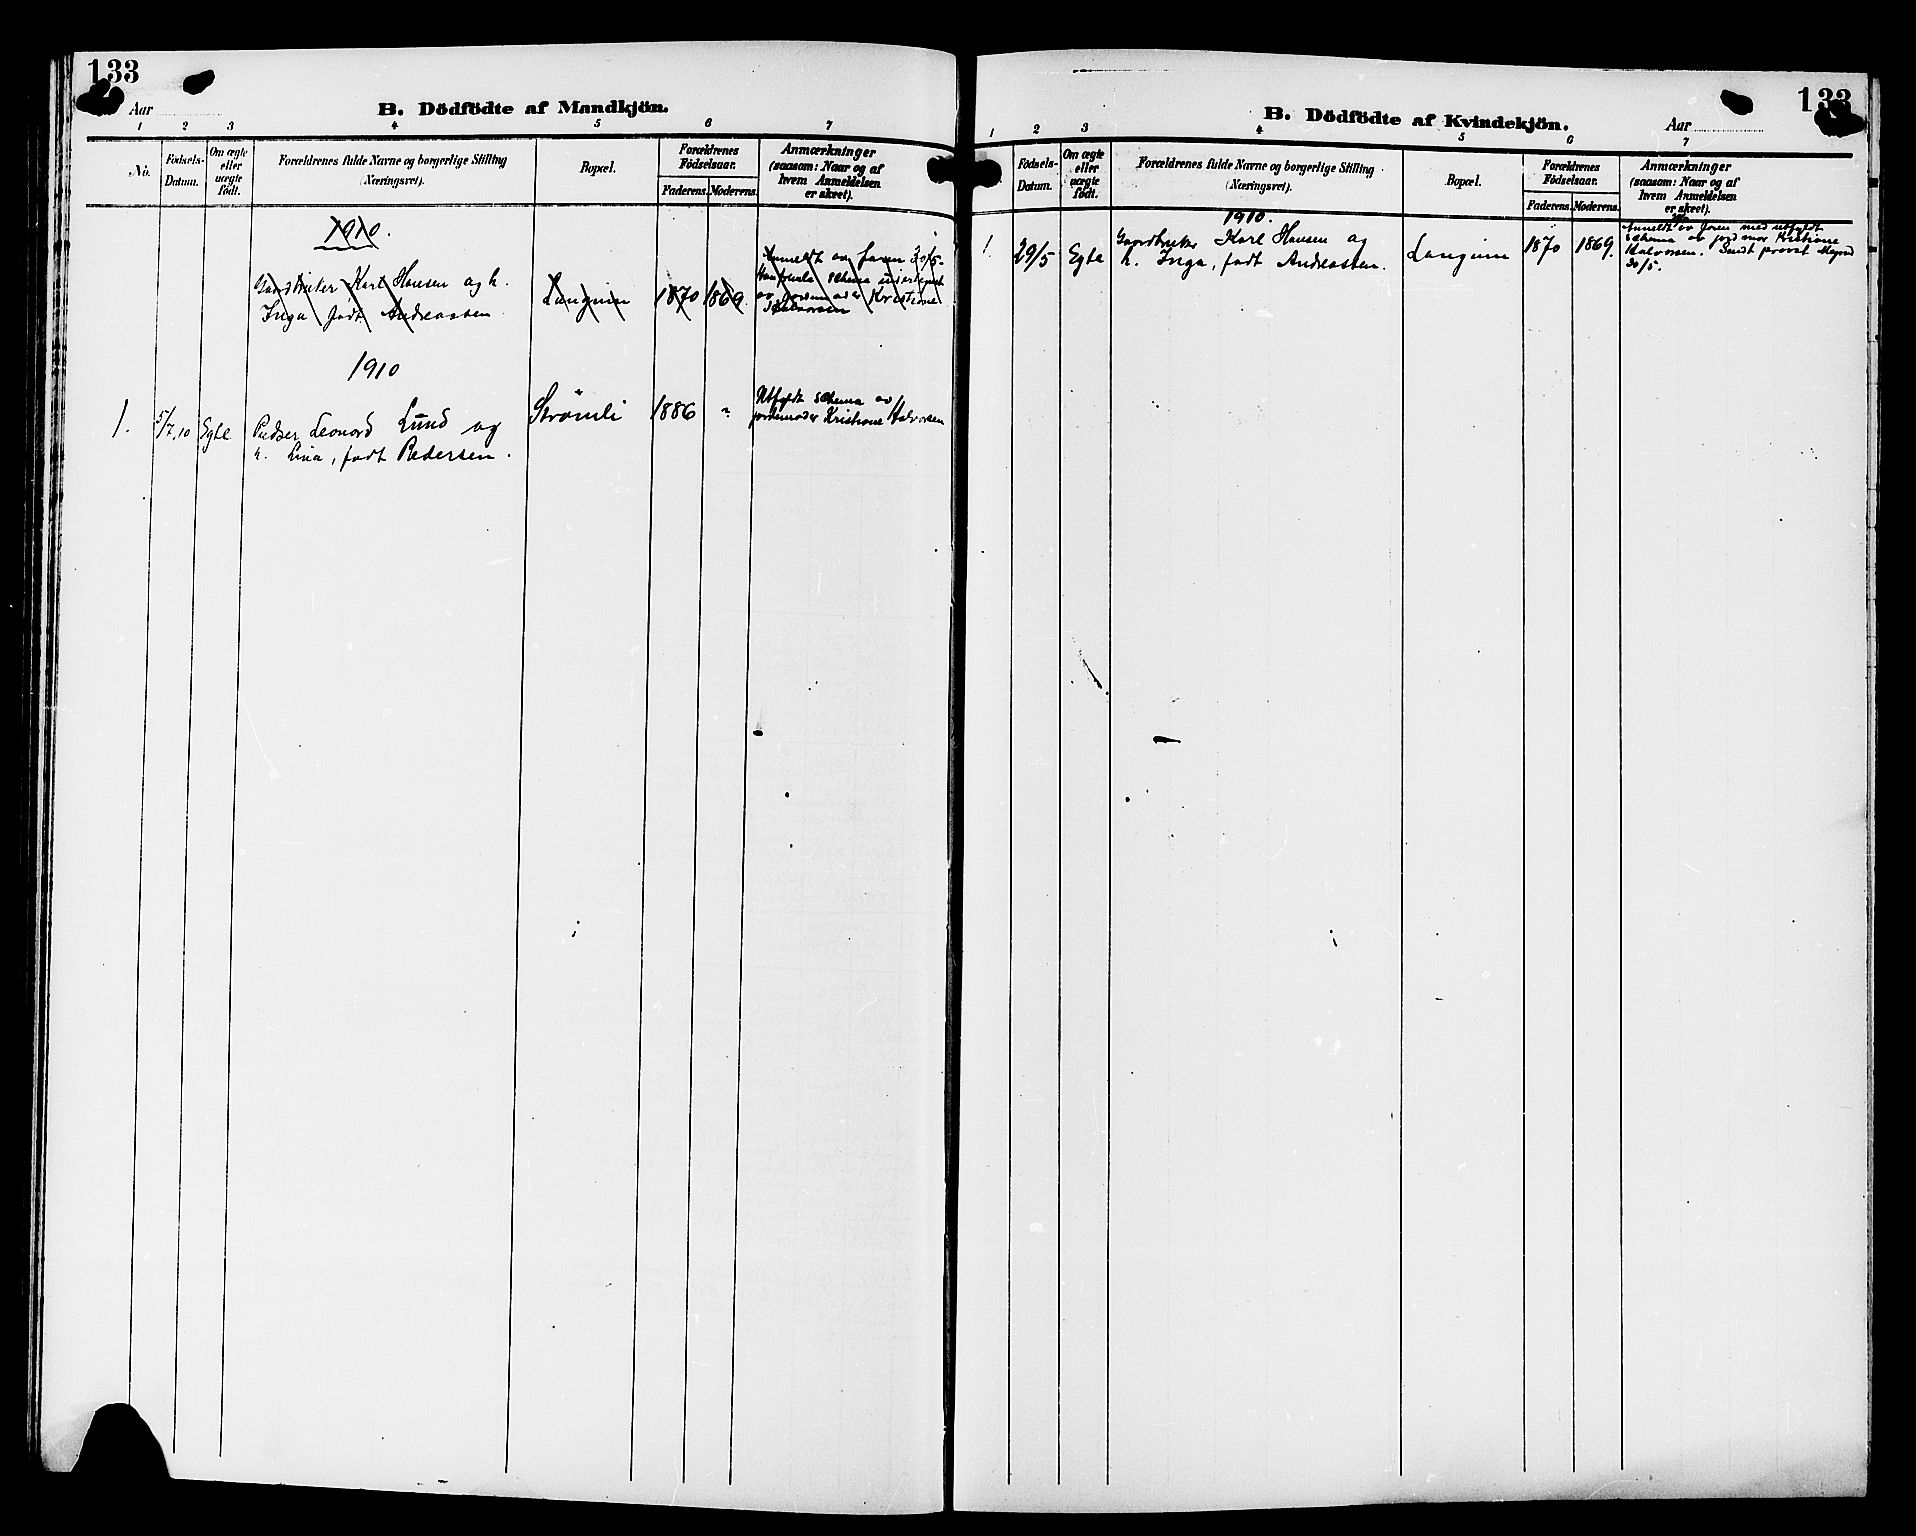 133
Aar
B. Dödfödte af Mandkjön.
1 2 3 4 5 6 7
No.
Födsels-Datum.
Om ægte eller uægte födt.
Forældrenes fulde Navne og borgerlige Stilling (Næringsvei).
Bopæl.
Forældrenes Födselsaar.
Faderens. Moderens.
Anmærkninger (saasom: Naar og af hvem Anmeldelsen er skeet).
1910.
Gaardbruker Karl Hansen og h.
Inga, født Andreassen
Langum 1870 1869.
Anmeldt av faren 30/5.
schema undertegnet
av jordemoder Kristiane
Halvorsen
1910
1. 5/7.10 Egte
Pudser Leonard Lund og
h. Lina, født Pedersen.
Strömli 1886 "
Utfyldt schema av
jordemoder Kristiane Halvorsen
133
Aar
B. Dödfödte af Kvindekjön.
1 2 3 4 5 6 7
Födsels-Datum.
Om ægte eller uægte födt.
Forældrenes fulde Navne og borgerlige Stilling (Næringsvei).
Bopæl.
Forældrenes Födselsaar.
Faderens. Moderens.
Anmærkninger (saasom: Naar og af hvem Anmeldelsen er skeet).
1910.
1. 29/5 Egte
Gaardbruker Karl Hansen og
h. Inga, født Andreassen.
Langum 1870 1869.
Anmeldt av faren med utfyldt
schema av jordmor Kristiane
Halvorsen. Sendt provst
30/5.